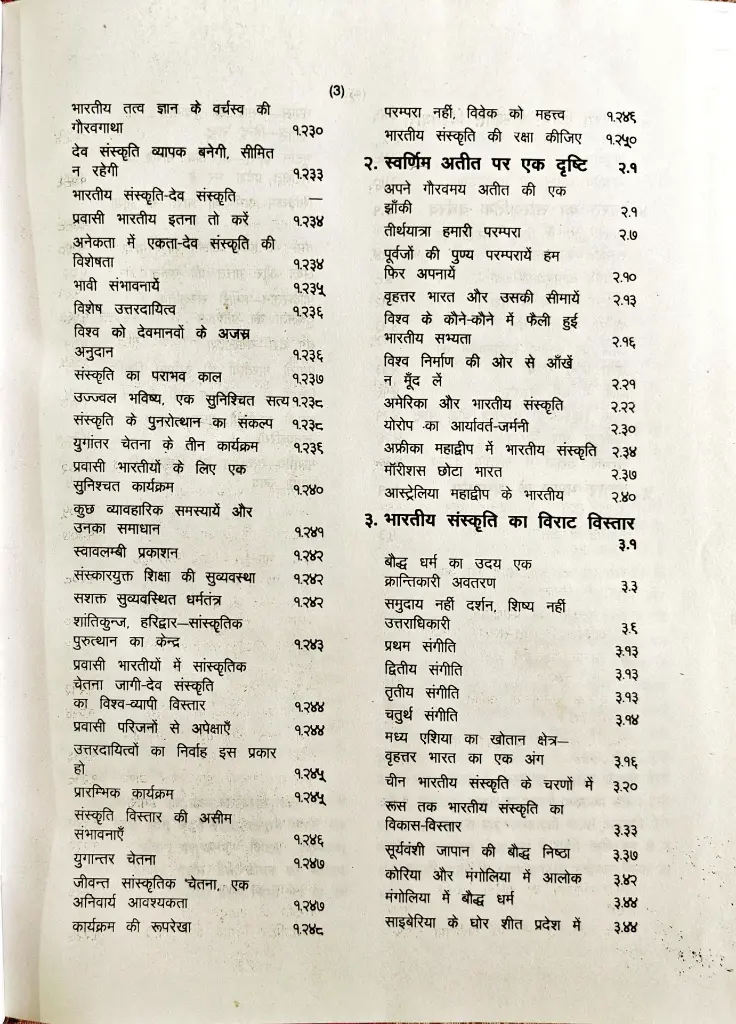 (3)
भारतीय तत्व ज्ञान के वर्चस्व की
गौरवगाथा १.२३०
देव संस्कृति व्यापक बनेगी, सीमित
न रहेगी १.२३३
भारतीय संस्कृति-देव संस्कृति —
प्रवासी भारतीय इतना तो करें १.२३४
अनेकता में एकता-देव संस्कृति की
विशेषता १.२३४
भावी संभावनायें १.२३५
विशेष उत्तरदायित्व १.२३६
विश्व को देवमानवों के अजस्र
अनुदान १.२३६
संस्कृति का पराभव काल १.२३७
उज्ज्वल भविष्य, एक सुनिश्चित सत्य १.२३८
संस्कृति के पुनरोत्थान का संकल्प १.२३८
युगांतर चेतना के तीन कार्यक्रम १.२३६
प्रवासी भारतीयों के लिए एक
सुनिश्चत कार्यक्रम १.२४०
कुछ व्यावहारिक समस्यायें और
उनका समाधान १.२४१
स्वावलम्बी प्रकाशन १.२४२
संस्कारयुक्त शिक्षा की सुव्यवस्था १.२४२
सशक्त सुव्यवस्थित धर्मतंत्र १.२४२
शांतिकुन्ज, हरिद्वार—सांस्कृतिक
पुरुत्थान का केन्द्र १.२४३
प्रवासी भारतीयों में सांस्कृतिक
चेतना जागी-देव संस्कृति
का विश्व-व्यापी विस्तार १.२४४
प्रवासी परिजनों से अपेक्षाएँ १.२४४
उत्तरदायित्वों का निर्वाह इस प्रकार
हो १.२४५
प्रारम्भिक कार्यक्रम १.२४५
संस्कृति विस्तार की असीम
संभावनाएँ १.२४६
युगान्तर चेतना १.२४७
जीवन्त सांस्कृतिक चेतना, एक
अनिवार्य आवश्यकता १.२४७
कार्यक्रम की रूपरेखा १.२४८
परम्परा नहीं, विवेक को महत्त्व १.२४६
भारतीय संस्कृति की रक्षा कीजिए १.२५०
२. स्वर्णिम अतीत पर एक दृष्टि २.१
अपने गौरवमय अतीत की एक
झाँकी २.१
तीर्थयात्रा हमारी परम्परा २.७
पूर्वजों की पुण्य परम्परायें हम
फिर अपनायें २.१०
वृहत्तर भारत और उसकी सीमायें २.१३
विश्व के कौने-कौने में फैली हुई
भारतीय सभ्यता २.१६
विश्व निर्माण की ओर से आँखें
न मूँद लें २.२१
अमेरिका और भारतीय संस्कृति २.२२
योरोप का आर्यावर्त-जर्मनी २.३०
अफ्रीका महाद्वीप में भारतीय संस्कृति २.३४
मॉरीशस छोटा भारत २.३७
आस्ट्रेलिया महाद्वीप के भारतीय २.४०
३. भारतीय संस्कृति का विराट विस्तार
३.१
बौद्ध धर्म का उदय एक
क्रान्तिकारी अवतरण ३.३
समुदाय नहीं दर्शन, शिष्य नहीं
उत्तराधिकारी ३.६
प्रथम संगीति ३.१३
द्वितीय संगीति ३.१३
तृतीय संगीति ३.१३
चतुर्थ संगीति ३.१४
मध्य एशिया का खोतान क्षेत्र—
वृहत्तर भारत का एक अंग ३.१६
चीन भारतीय संस्कृति के चरणों में ३.२०
रूस तक भारतीय संस्कृति का
विकास-विस्तार ३.३३
सूर्यवंशी जापान की बौद्ध निष्ठा ३.३७
कोरिया और मंगोलिया में आलोक ३.४२
मंगोलिया में बौद्ध धर्म ३.४४
साइबेरिया के घोर शीत प्रदेश में ३.४४